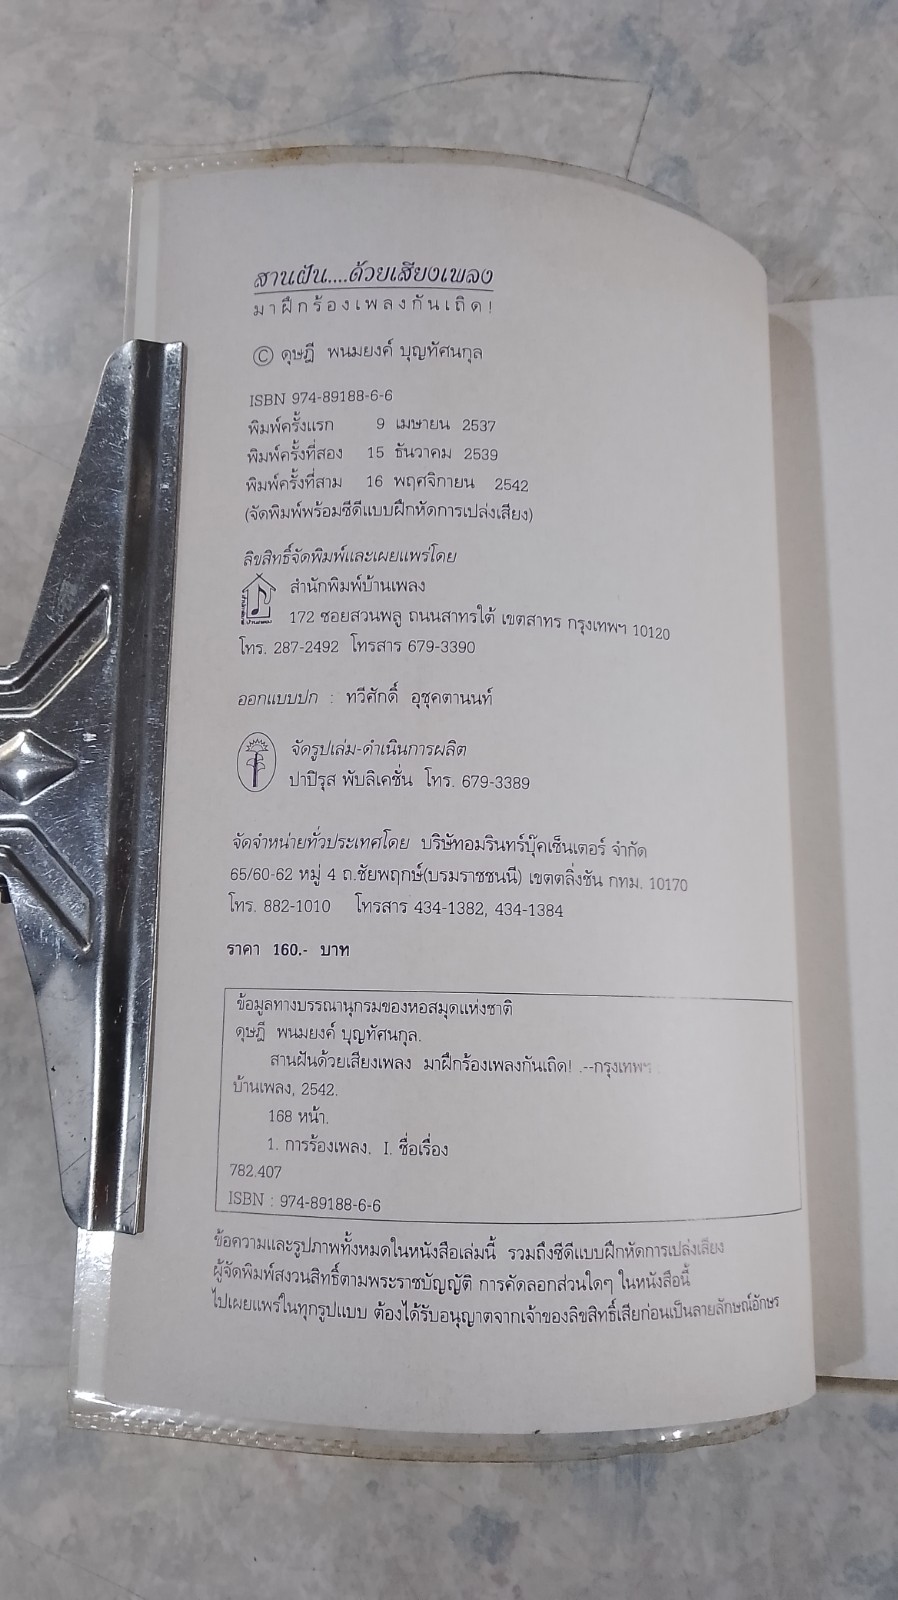 สานฝัน....ด้วยเสียงเพลง
มาฝึกร้องเพลงกันเถิด!
© ดุษฎี พนมยงค์ บุญทัศนกุล
ISBN 974-89188-6-6
พิมพ์ครั้งแรก 9 เมษายน 2537
พิมพ์ครั้งที่สอง 15 ธันวาคม 2539
พิมพ์ครั้งที่สาม 16 พฤศจิกายน 2542
(จัดพิมพ์พร้อมซีดีแบบฝึกหัดการเปล่งเสียง)
ลิขสิทธิ์จัดพิมพ์และเผยแพร่โดย
สำนักพิมพ์บ้านเพลง
172 ซอยสวนพลู ถนนสาทรใต้ เขตสาทร กรุงเทพฯ 10120
โทร. 287-2492 โทรสาร 679-3390
ออกแบบปก : ทวีศักดิ์ อุชุคตานนท์
จัดรูปเล่ม-ดำเนินการผลิต
ปาปิรุส พับลิเคชั่น โทร. 679-3389
จัดจำหน่ายทั่วประเทศโดย บริษัทอมรินทร์บุ๊คเซ็นเตอร์ จำกัด
65/60-62 หมู่ 4 ถ.ชัยพฤกษ์(บรมราชชนนี) เขตตลิ่งชัน กทม. 10170
โทร. 882-1010 โทรสาร 434-1382, 434-1384
ราคา 160.- บาท
ข้อมูลทางบรรณานุกรมของหอสมุดแห่งชาติ
ดุษฎี พนมยงค์ บุญทัศนกุล.
สานฝันด้วยเสียงเพลง มาฝึกร้องเพลงกันเถิด! .--กรุงเทพฯ :
บ้านเพลง, 2542.
168 หน้า.
1. การร้องเพลง. I. ชื่อเรื่อง
782.407
ISBN : 974-89188-6-6
ข้อความและรูปภาพทั้งหมดในหนังสือเล่มนี้ รวมถึงซีดีแบบฝึกหัดการเปล่งเสียง
ผู้จัดพิมพ์สงวนสิทธิ์ตามพระราชบัญญัติ การคัดลอกส่วนใดๆ ในหนังสือนี้
ไปเผยแพร่ในทุกรูปแบบ ต้องได้รับอนุญาตจากเจ้าของลิขสิทธิ์เสียก่อนเป็นลายลักษณ์อักษร